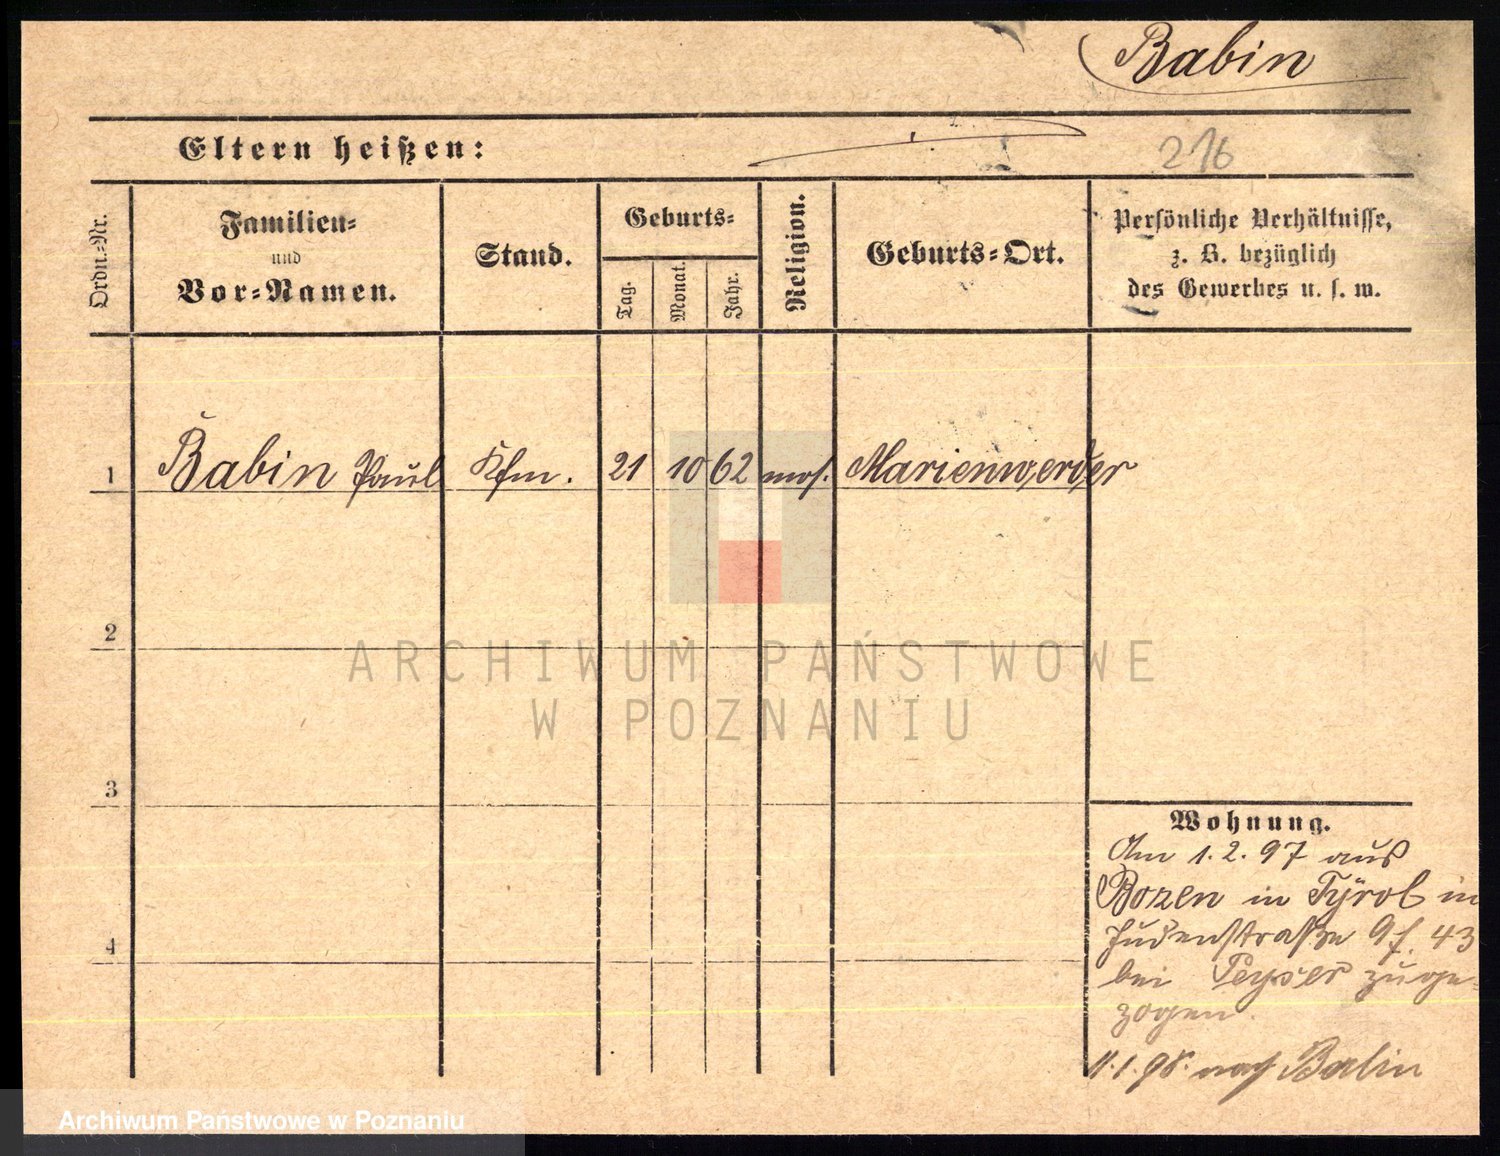 Babin
Eltern heißen:
216
Ordn.-Nr.
Familien-
und
Vor-Namen.
Stand.
Geburts-
Tag.
Monat.
Jahr.
Religion.
Geburts-Ort.
Persönliche Verhältnisse,
z. B. bezüglich
des Gewerbes u. s. w.
1 Babin Paul Kfm. 21 10 62 mos. Marienwerder
2
3
4
Wohnung.
Am 1. 2. 97 aus
Bozen in Tyrol in
Judenstraße 43
bei Peyser zuge-
zogen.
11.1.98. nach Berlin
ARCHIWUM PAŃSTWOWE
W POZNANIU
Archiwum Państwowe w Poznaniu